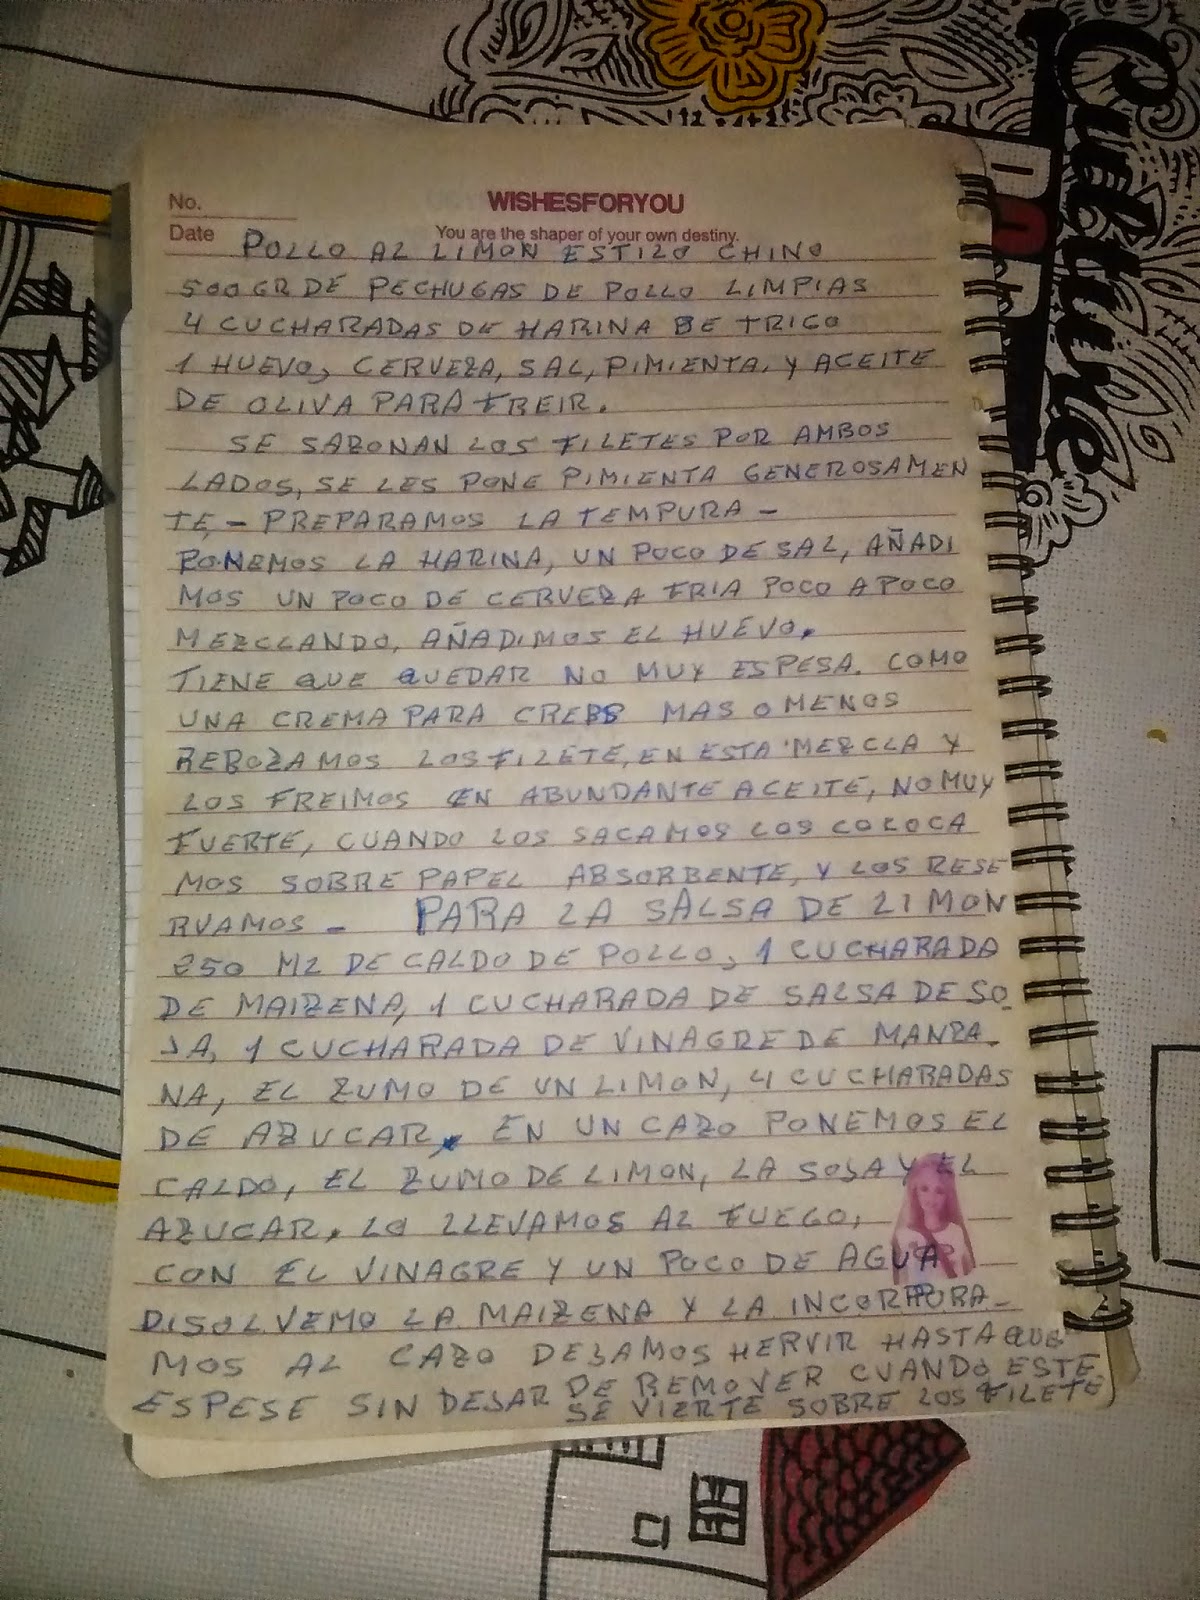 Culture
No.
WISHESFORYOU
Date
You are the shaper of your own destiny.
POLLO AL LIMON ESTILO CHINO
500 GR DE PECHUGAS DE POLLO LIMPIAS
4 CUCHARADAS DE HARINA DE TRIGO
1 HUEVO, CERVEZA, SAL, PIMIENTA, Y ACEITE
DE OLIVA PARA FREIR.
SE SAZONAN LOS FILETES POR AMBOS
LADOS, SE LES PONE PIMIENTA GENEROSAMEN
TE, - PREPARAMOS LA TEMPURA -
PONEMOS LA HARINA, UN POCO DE SAL, AÑADI
MOS UN POCO DE CERVEZA FRIA POCO A POCO
MEZCLANDO, AÑADIMOS EL HUEVO.
TIENE QUE QUEDAR NO MUY ESPESA. COMO
UNA CREMA PARA CREPS MAS O MENOS
REBOZAMOS LOS FILETE, EN ESTA MEZCLA Y
LOS FREIMOS EN ABUNDANTE ACEITE, NO MUY
FUERTE, CUANDO LOS SACAMOS LOS COLOCA
MOS SOBRE PAPEL ABSORBENTE, Y LOS RESE
RVAMOS - PARA LA SALSA DE LIMON
250 ML DE CALDO DE POLLO, 1 CUCHARADA
DE MAIZENA, 1 CUCHARADA DE SALSA DE SO
JA, 1 CUCHARADA DE VINAGRE DE MANZA-
NA, EL ZUMO DE UN LIMON, 4 CUCHARADAS
DE AZUCAR, EN UN CAZO PONEMOS EL
CALDO, EL ZUMO DE LIMON, LA SOJA Y EL
AZUCAR, LO LLEVAMOS AL FUEGO,
CON EL VINAGRE Y UN POCO DE AGUA
DISOLVEMO LA MAIZENA Y LA INCORPORA-
MOS AL CAZO DEJAMOS HERVIR HASTA QUE
ESPESE SIN DEJAR DE REMOVER CUANDO ESTE
SE VIERTE SOBRE LOS FILETE